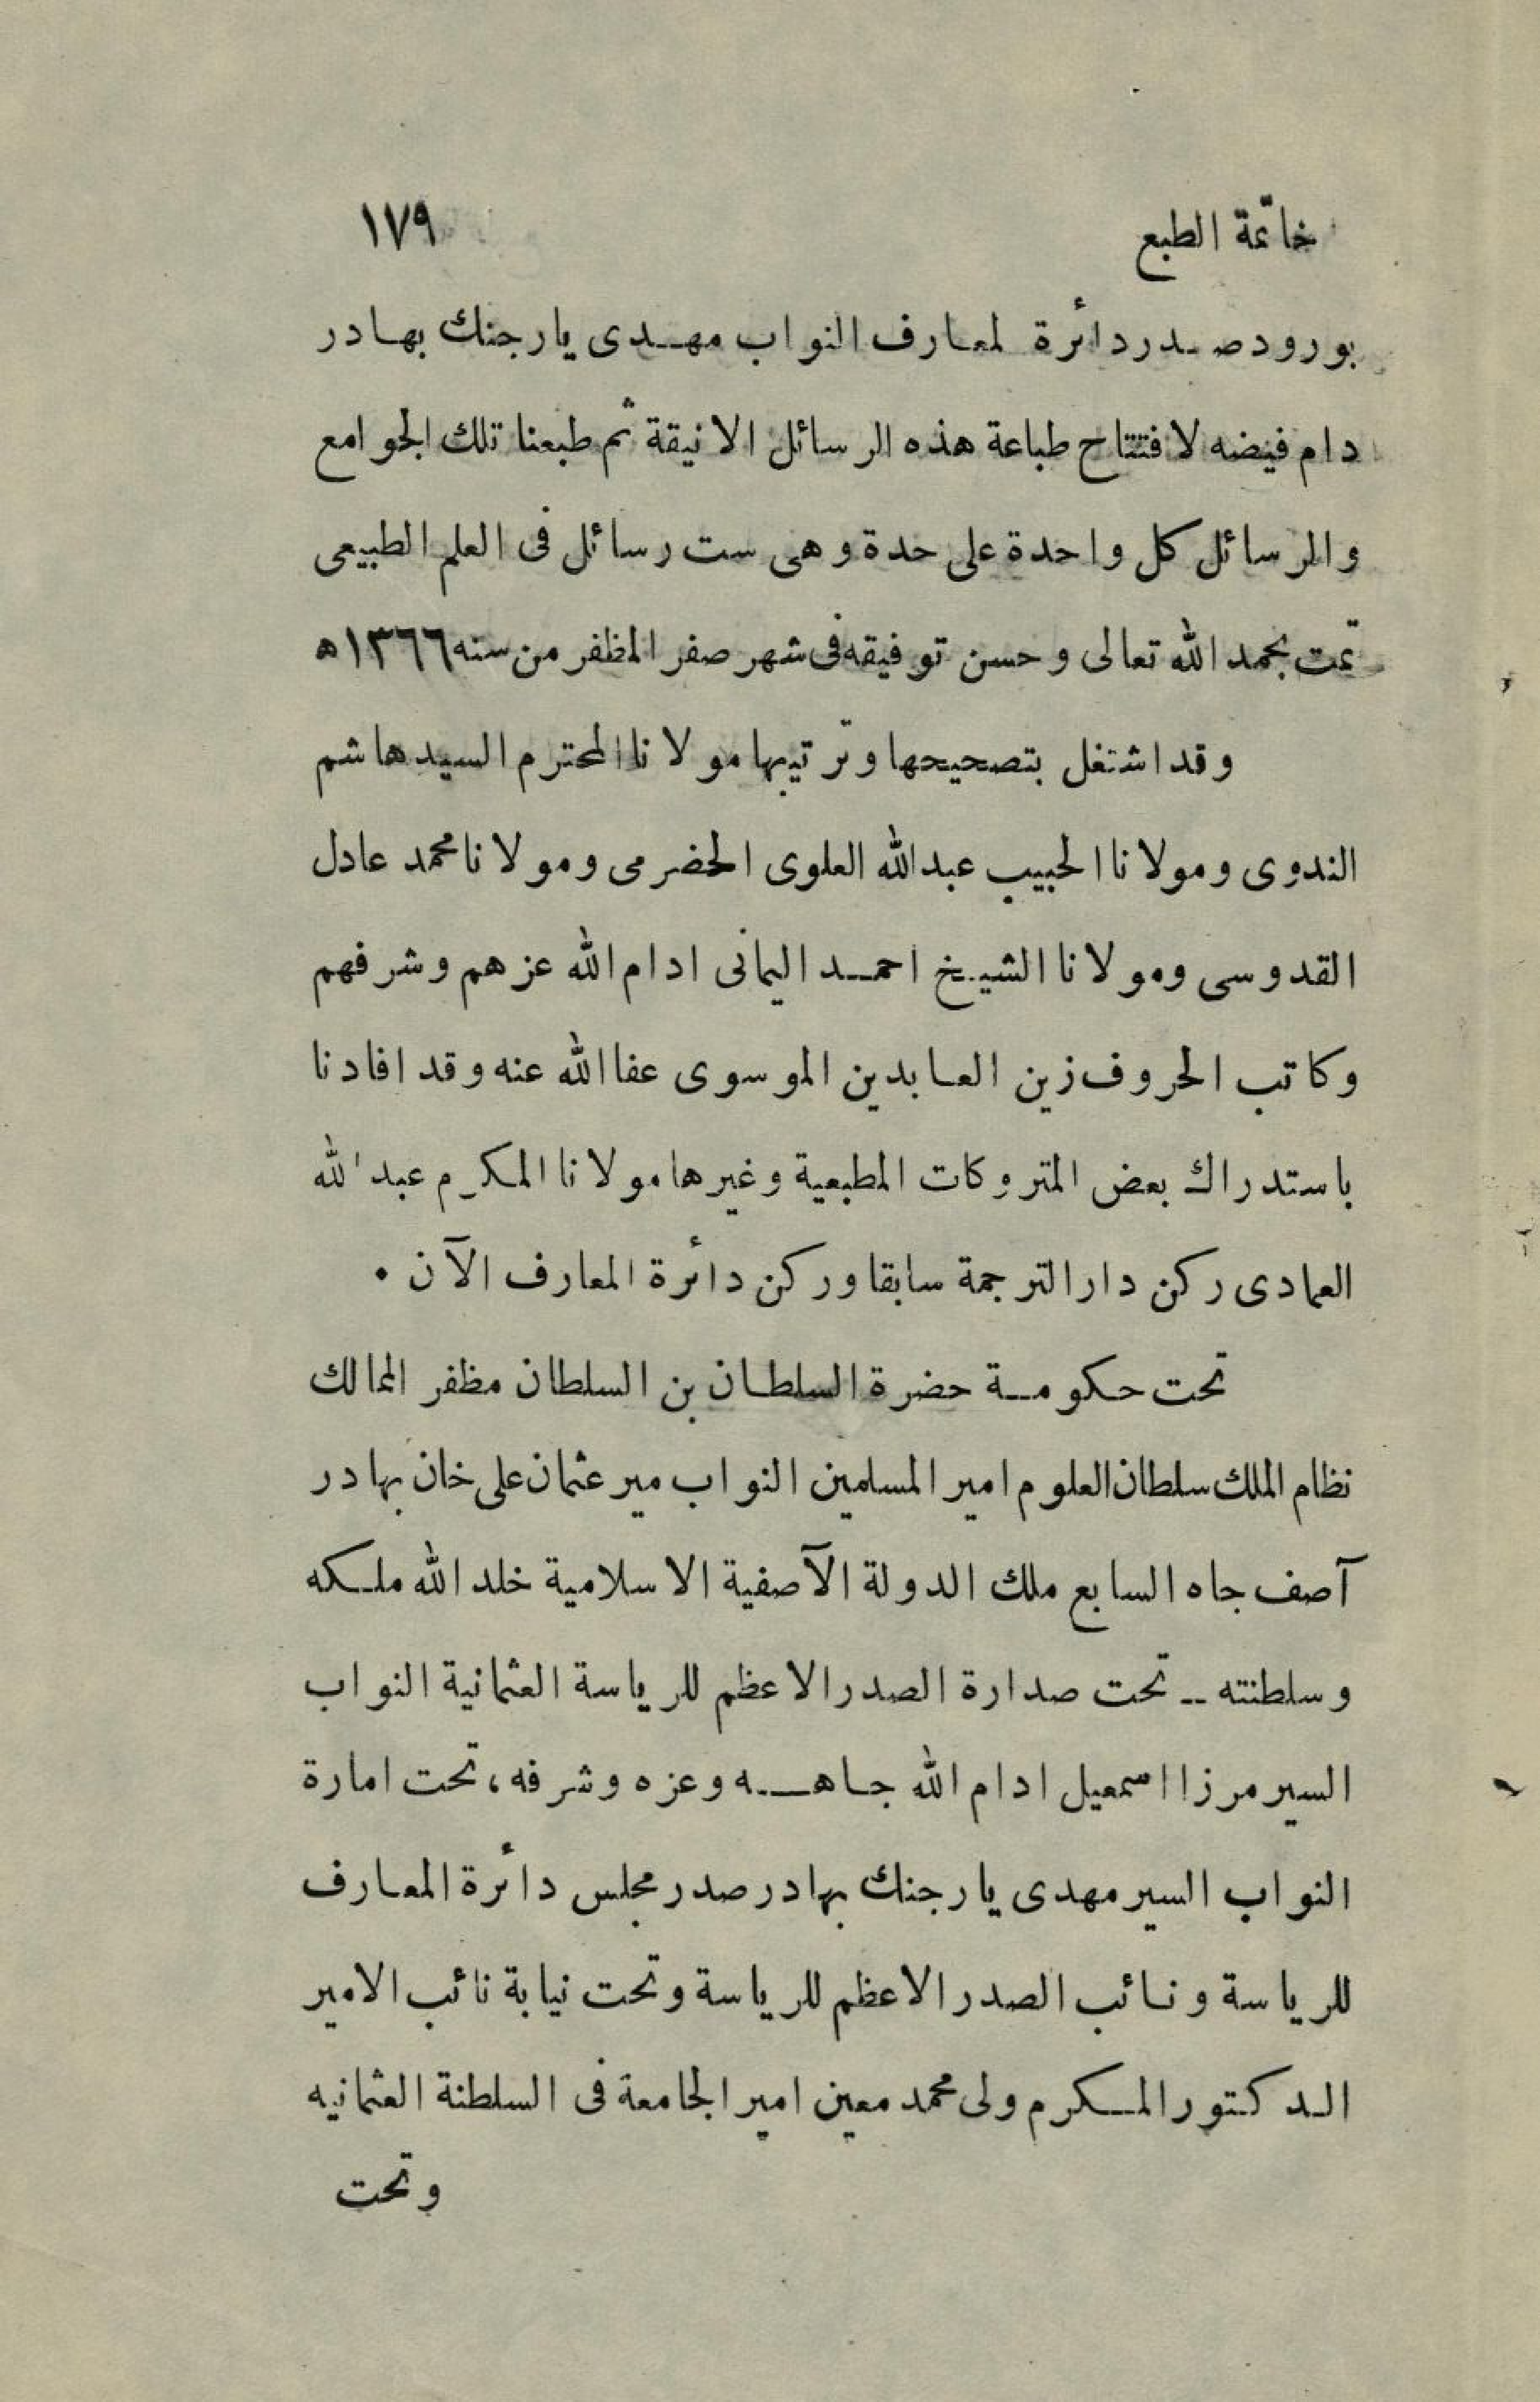 خاتمة الطبع ١٧٩
بورود صدر دائرة لمعارف النواب مهدى يار جنك بهادر
دام فيضه لافتتاح طباعة هذه الرسائل الانيقة ثم طبعنا تلك الجوامع
والرسائل كل واحدة على حدة وهى ست رسائل فى العلم الطبيعى
تمت بحمد الله تعالى وحسن توفيقه فى شهر صفر المظفر من سنه ١٣٦٦ه
وقد اشتغل بتصحيحها وترتيبها مولانا المحترم السيد هاشم
الندوى ومولانا الحبيب عبد الله العلوى الحضرمى ومولانا محمد عادل
القدوسى ومولانا الشيخ احمد اليمانى ادام الله عزهم وشرفهم
وكاتب الحروف زين العابدين الموسوى عفا الله عنه وقد افادنا
باستدراك بعض المتروكات المطبعية وغيرها مولانا المكرم عبد الله
العمادى ركن دار الترجمة سابقا وركن دائرة المعارف الآن ٠
تحت حكومة حضرة السلطان بن السلطان مظفر الممالك
نظام الملك سلطان العلوم امير المسلمين النواب مير عثمان على خان بهادر
آصف جاه السابع ملك الدولة الآصفية الاسلامية خلد الله ملكه
وسلطنته -- تحت صدارة الصدر الاعظم للرياسة العثمانية النواب
السير مرزا اسمعيل ادام الله جاهه وعزه وشرفه، تحت امارة
النواب السير مهدى يار جنك بهادر صدر مجلس دائرة المعارف
للرياسة ونائب الصدر الاعظم للرياسة وتحت نيابة نائب الامير
الدكتور المكرم ولى محمد معين امير الجامعة فى السلطنة العثمانيه
وتحت